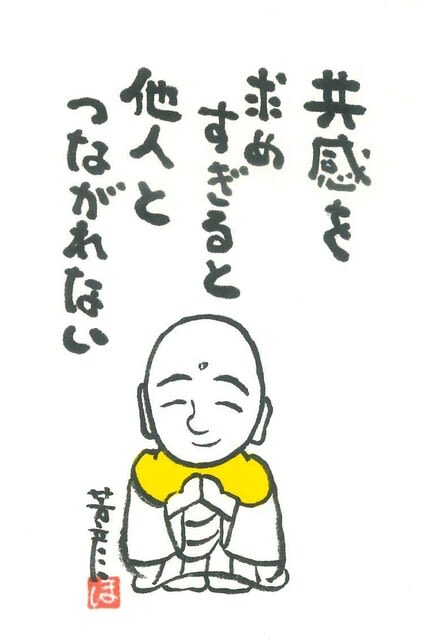 共感を
求め
すぎると
他人と
つながれない
ほ